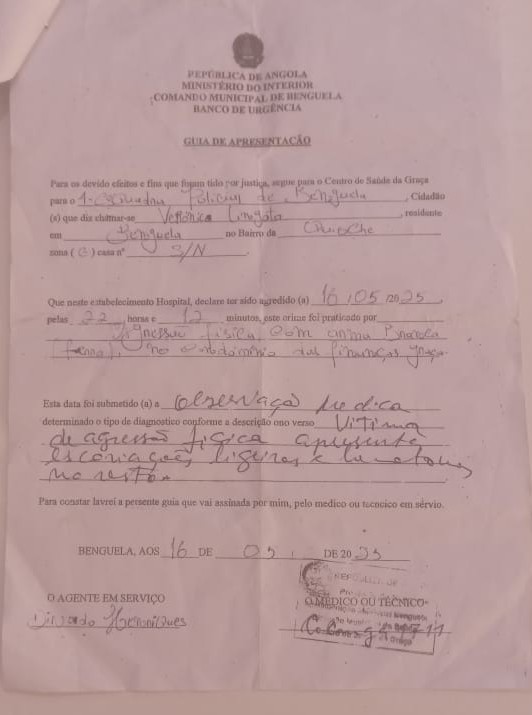 REPÚBLICA DE ANGOLA
MINISTÉRIO DO INTERIOR
COMANDO MUNICIPAL DE BENGUELA
BANCO DE URGÊNCIA
GUIA DE APRESENTAÇÃO
Para os devido efeitos e fins que fojam tido por justiça, segue para o Centro de Saúde da Graça
para o 1ª Esquadra Policial de Benguela, Cidadão
(a) que diz chamar-se Verónica, residante
em Benguela no Bairro da
zona ( G ) casa nº S/N.
Que neste estabelecimento Hospital, declare ter sido agredido (a) 16/05/2025,
pelas 22 horas e 12 minutos, este crime foi praticado por
Agressão física com arma Branca
no condomínio das finanças graça.
Esta data foi submetido (a) a Observação Medica
determinado o tipo de diagnostico conforme a descrição ono verso Vitima
de agressão fisica apresenta
escoriações ligeiras e
no rosto.
Para constar lavrei a persente guia que vai assinada por mim, pelo medico ou tecncico em sérvio.
BENGUELA, AOS 16 DE 05 DE 2025
O AGENTE EM SERVIÇO
O MÉDICO OU TÉCNICO
Henriques